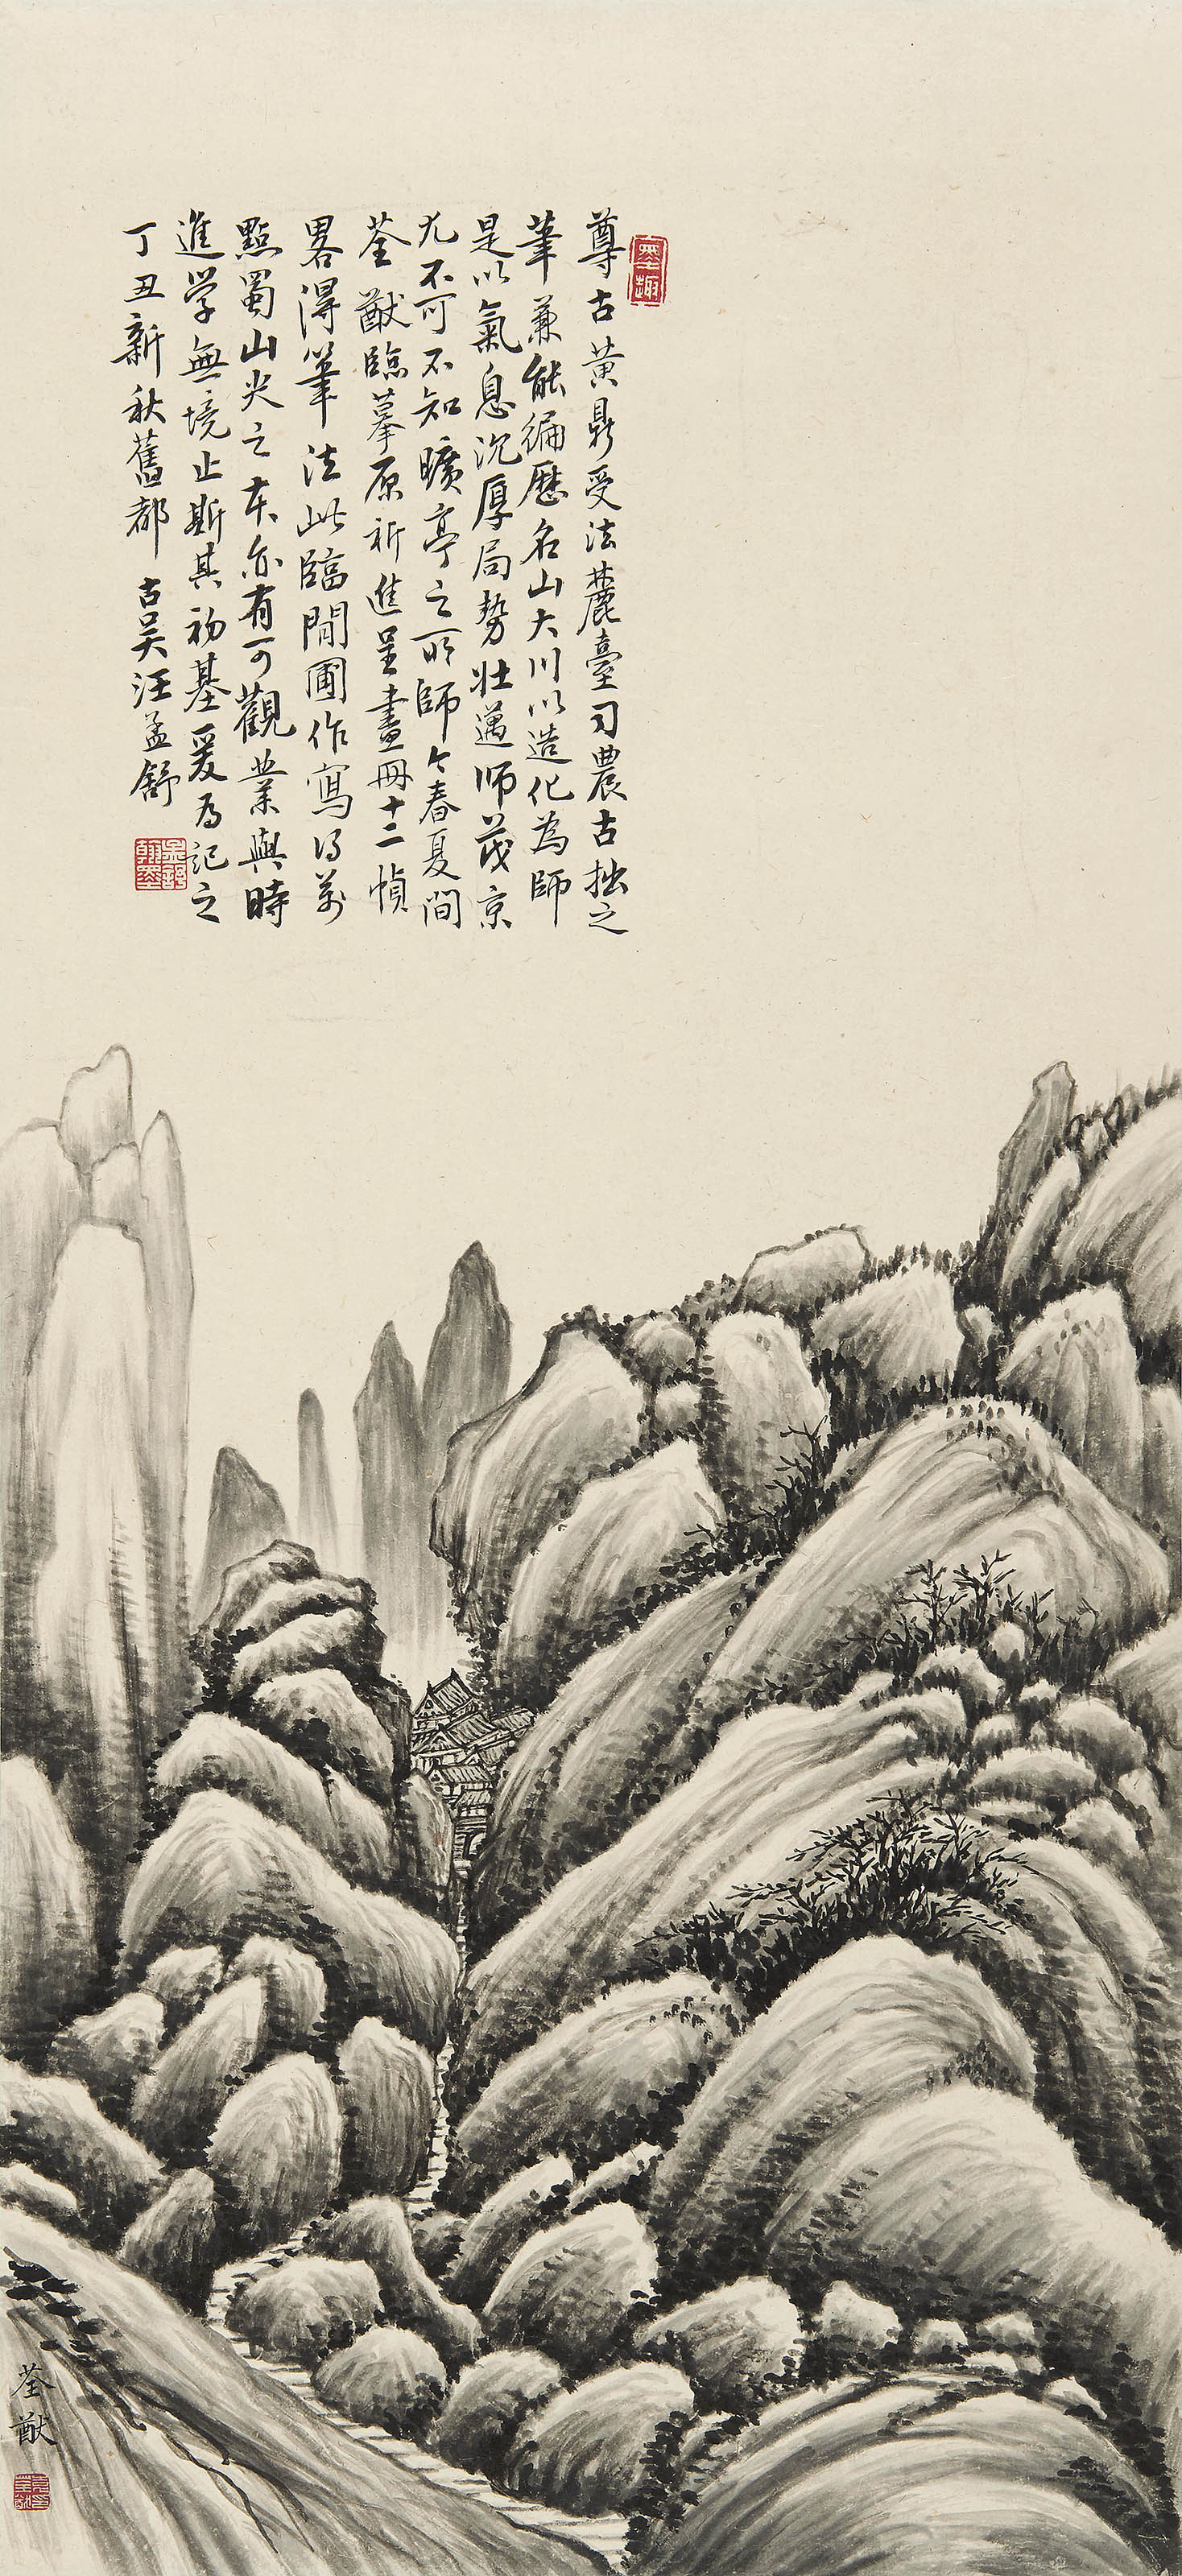 墨趣
尊古黃鼎受法麓臺司農古拙之
筆兼能徧歷名山大川以造化為師
是以氣息沉厚局勢壯邁師茂京
尤不可不知曠亭之所師今春夏間
荃猷臨摹原祈進呈畫冊十二幀
畧得筆法此臨閒圃作寫得萬
點蜀山尖之本亦有可觀業與時
進學無境止斯其初基爰為記之
丁丑新秋舊都 古吴汪孟舒
荃猷